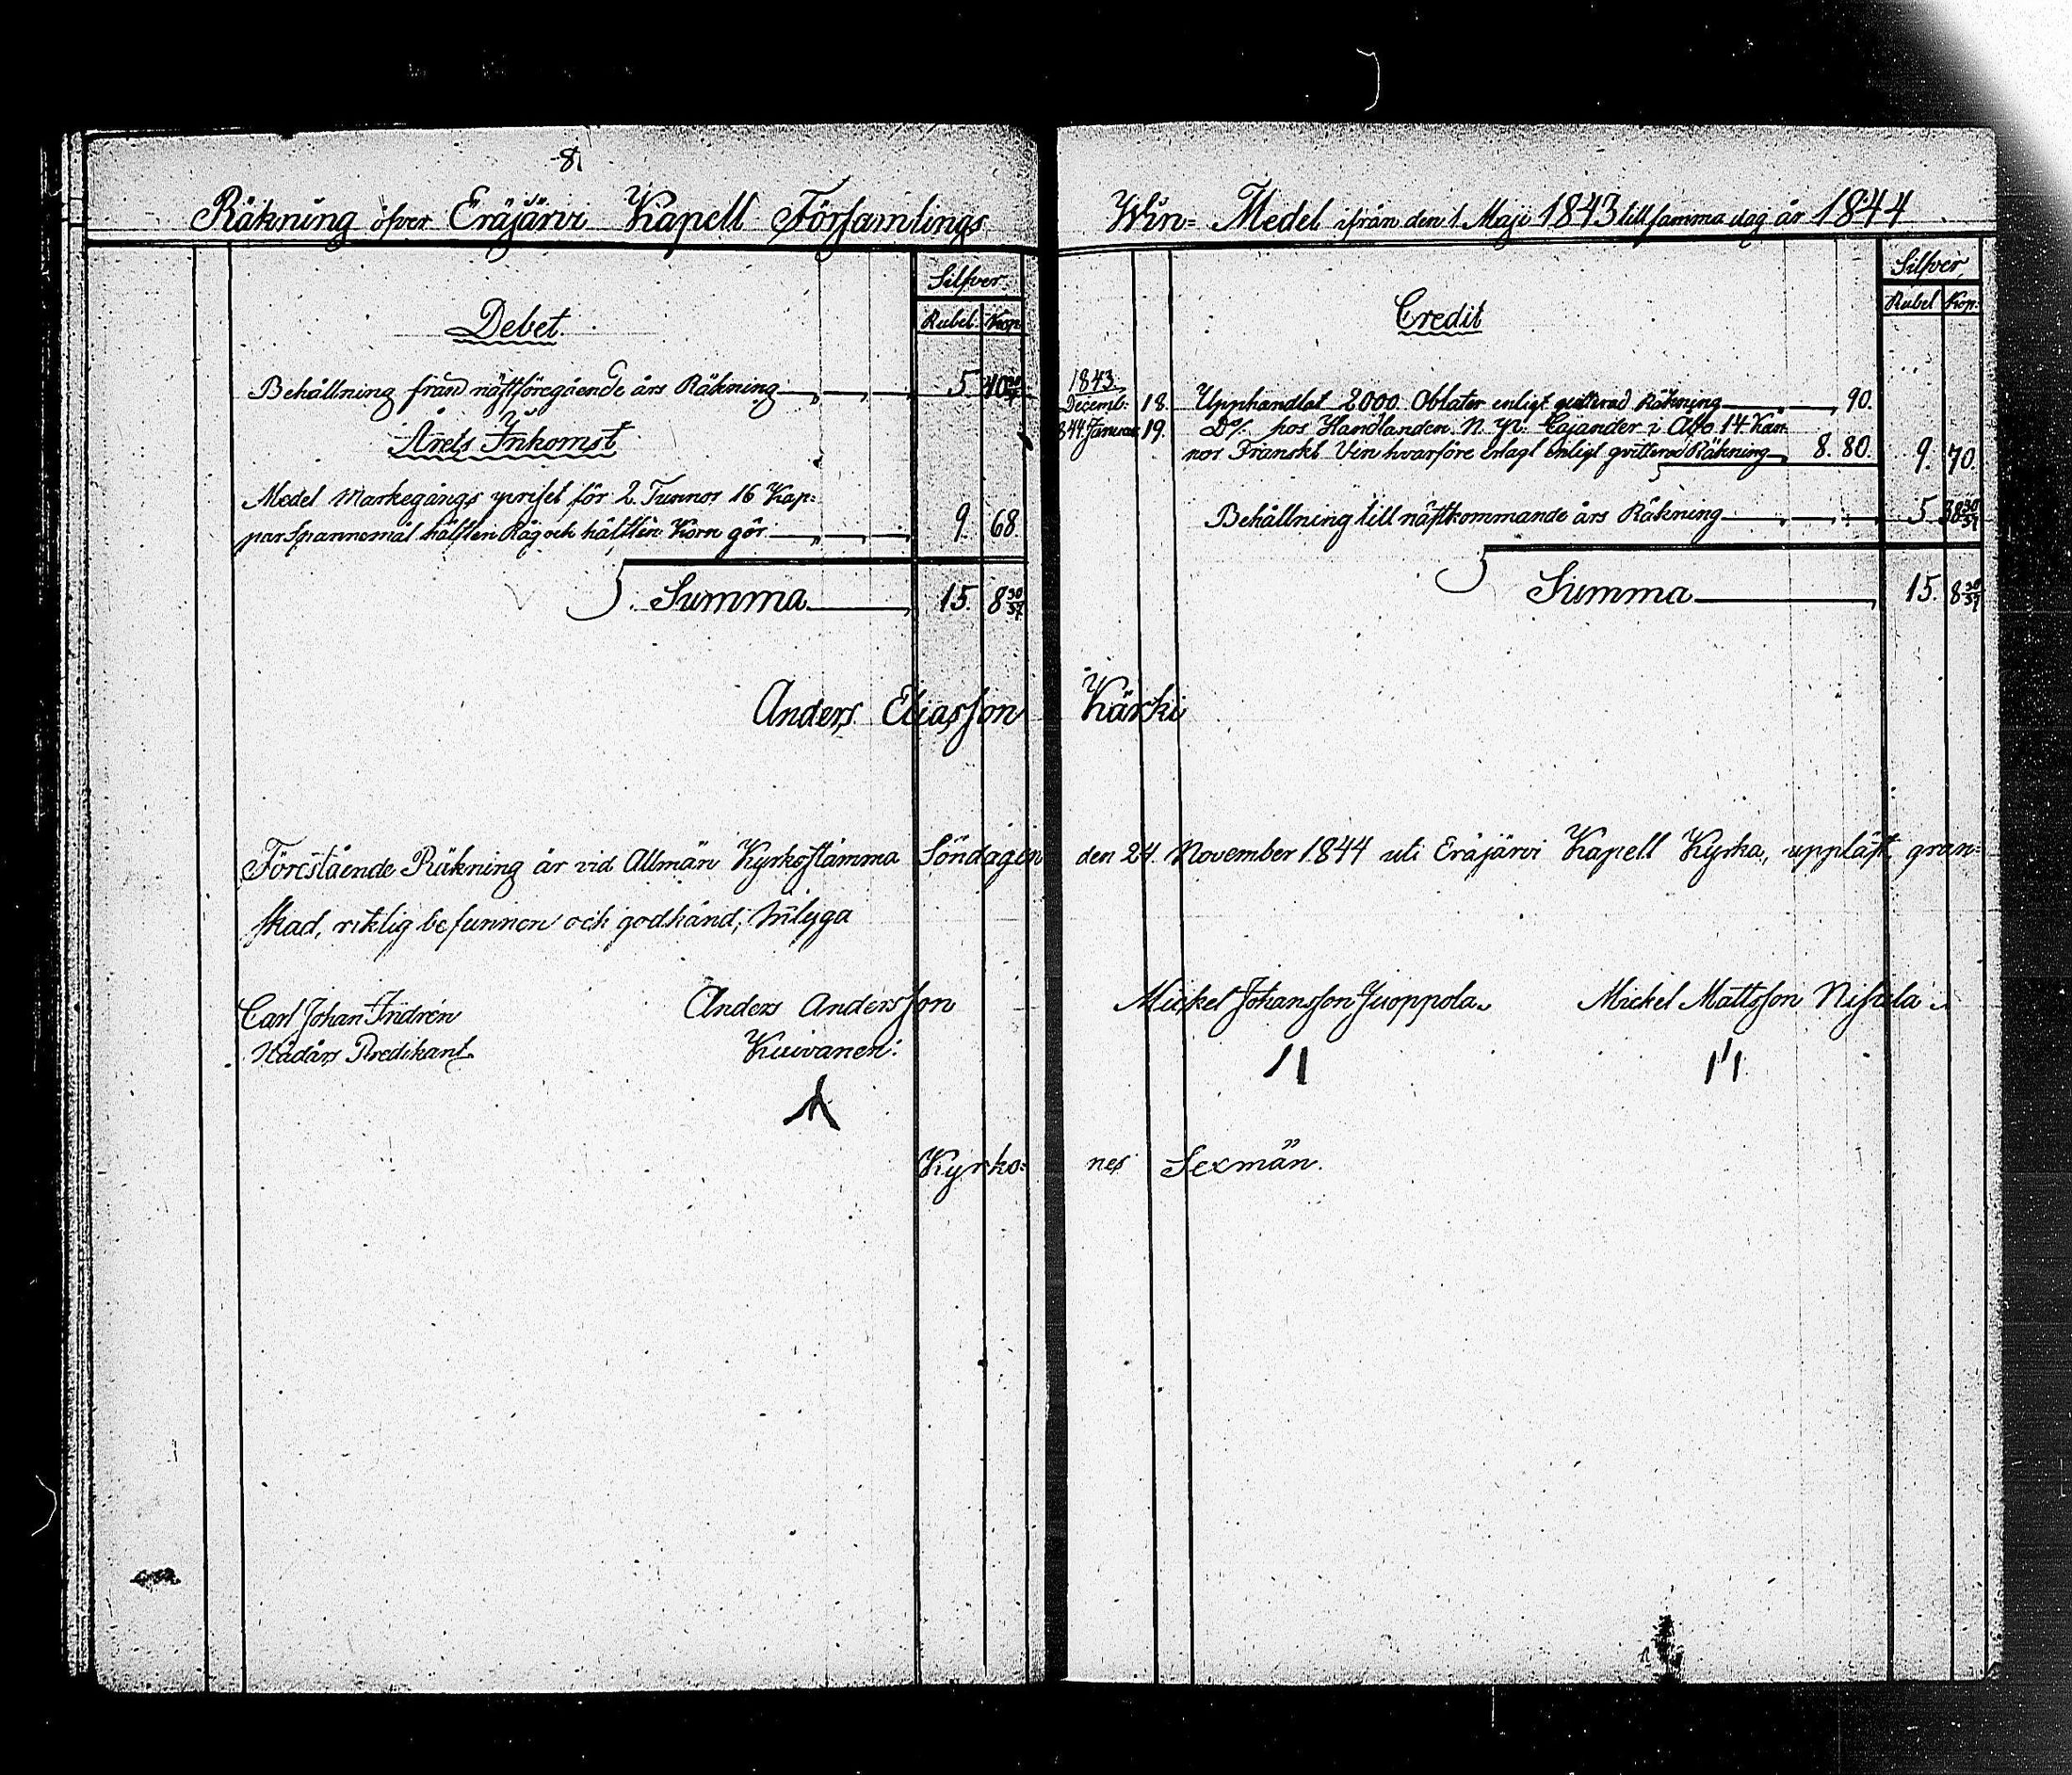 8
Räkning öfver Eräjärvi Kapell Församlings Win= Medel ifrån den 1 Maji 1843 till samma dag år 1844
Silfver.
Debet.
Rubel. Kop.
Behållning från nästföregående års Räkning 5. 40 30/37
Årets Inkomst
Medel Markegångs priset för 2. Tunnor 16 Kap=
par Spannemål hälften Råg och hälften Korn gör 9. 68.
Summa 15. 8 30/37
Silfver.
Credit
Rubel Kop.
1843
Decemb: 18. Upphandlat 2000 Oblater enligt qvitterad Räkning 90.
1844 Januari 19. Do/. hos Handlanden N. Cajander i Åbo 14 Kan
nor Franskt Vin hvarföre erlagt enligt qvitterad Räkning 8. 80. 9. 70.
Behållning till nästkommande års Räkning 5. 38 30/37
Summa 15. 8 30/37
Anders Eliasson Kärki
Förestående Räkning är vid Allmän Kyrkostämma Söndagen den 24. November 1844 uti Eräjärvi Kapell Kyrka, uppläst, gran=
skad, riktig befunnen och godkänd; intyga
Carl Johan Indrén Anders Andersson Mickel Johansson Juoppola. Mickel Mattsson Nihela.
Nådårs Predikant. Kuivanen.
Kyrko= nes Sexmän.